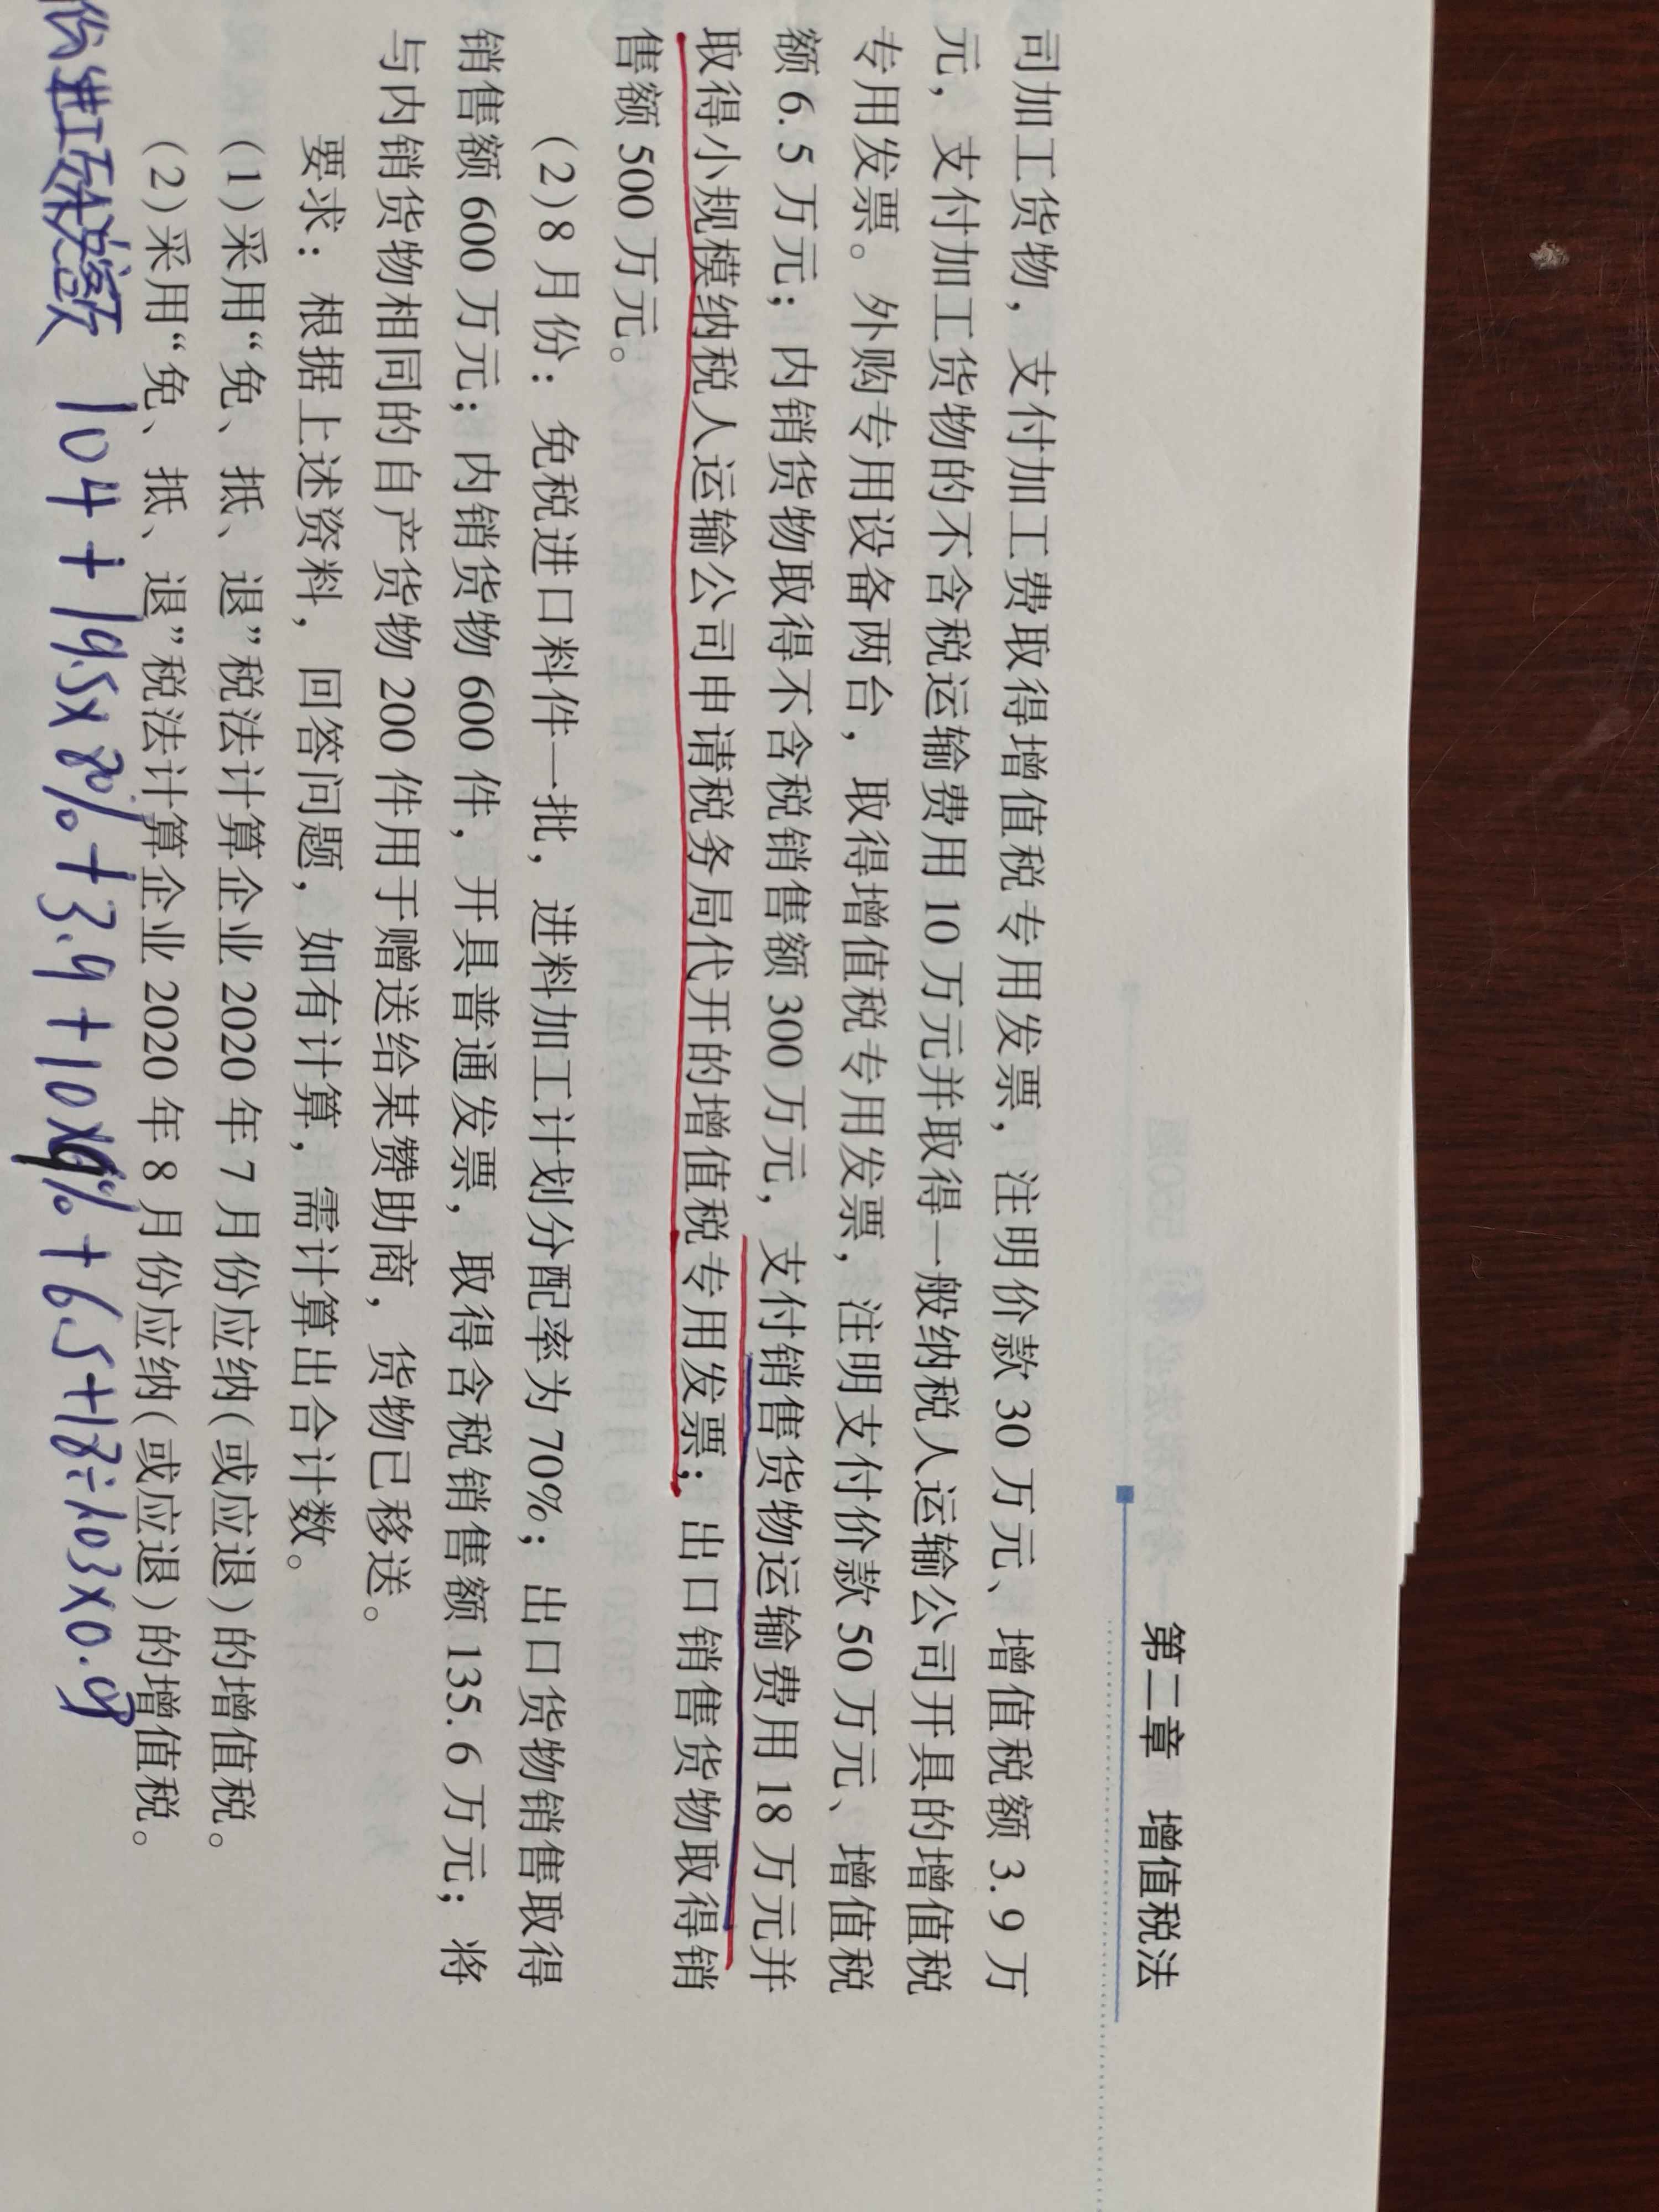 第二章 增值税法
司加工货物，支付加工费取得增值税专用发票，注明价款 30 万元、增值税额 3.9 万
元，支付加工货物的不含税运输费用 10 万元并取得一般纳税人运输公司开具的增值税
专用发票。外购专用设备两台，取得增值税专用发票，注明支付价款 50 万元、增值税
额 6.5 万元；内销货物取得不含税销售额 300 万元，支付销售货物运输费用 18 万元并
取得小规模纳税人运输公司申请税务局代开的增值税专用发票；出口销售货物取得销
售额 500 万元。
(2)8 月份：免税进口料件一批，进料加工计划分配率为 70%；出口货物销售取得
销售额 600 万元；内销货物 600 件，开具普通发票，取得含税销售额 135.6 万元；将
与内销货物相同的自产货物 200 件用于赠送给某赞助商，货物已移送。
要求：根据上述资料，回答问题，如有计算，需计算出合计数。
(1)采用“免、抵、退”税法计算企业 2020 年 7 月份应纳(或应退)的增值税。
(2)采用“免、抵、退”税法计算企业 2020 年 8 月份应纳(或应退)的增值税。
份进项税额 104 + 19.5×80% + 3.9 + 10×9% + 6.5 + 18÷1.03×0.03